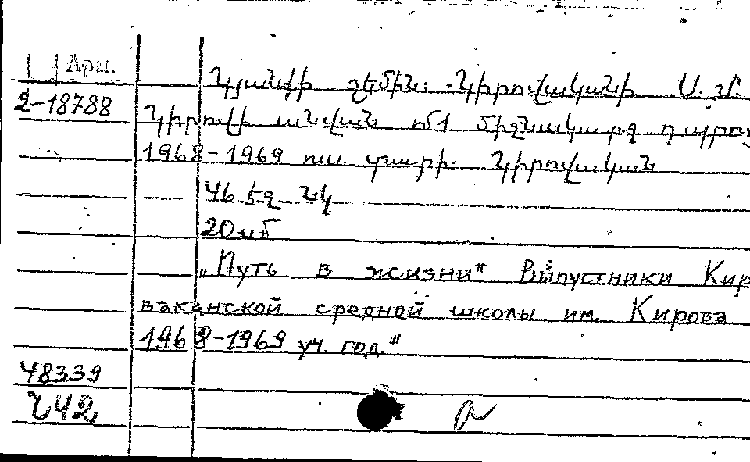 Арм.
Կյանքի շեմին: Կիրովականի Ս. Մ.
2-18788
Կիրովի անվան №1 միջնակարգ դպրոց
1968-1969 ուս տարի. Կիրովական
46 էջ նկ
20մб
„Путь в жизни“ Выпустники Кир
ваканской средной школы им. Кирова
1968-1969 уч. год.“
48339